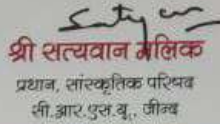 श्री सत्यवान मलिक
प्रधान, सांस्कृतिक परिषद
सी.आर.एस.यू., जीन्द